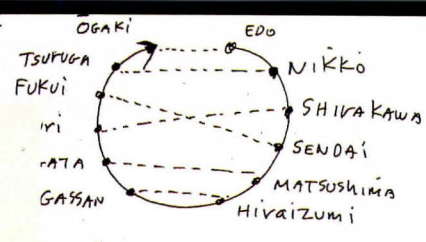 ŌGAKI
EDO
TSURUGA
NIKKŌ
FUKUI
SHIRAKAWA
iri
SENDAi
-ATA
MATSUSHIMA
GASSAN
HiraizUmi